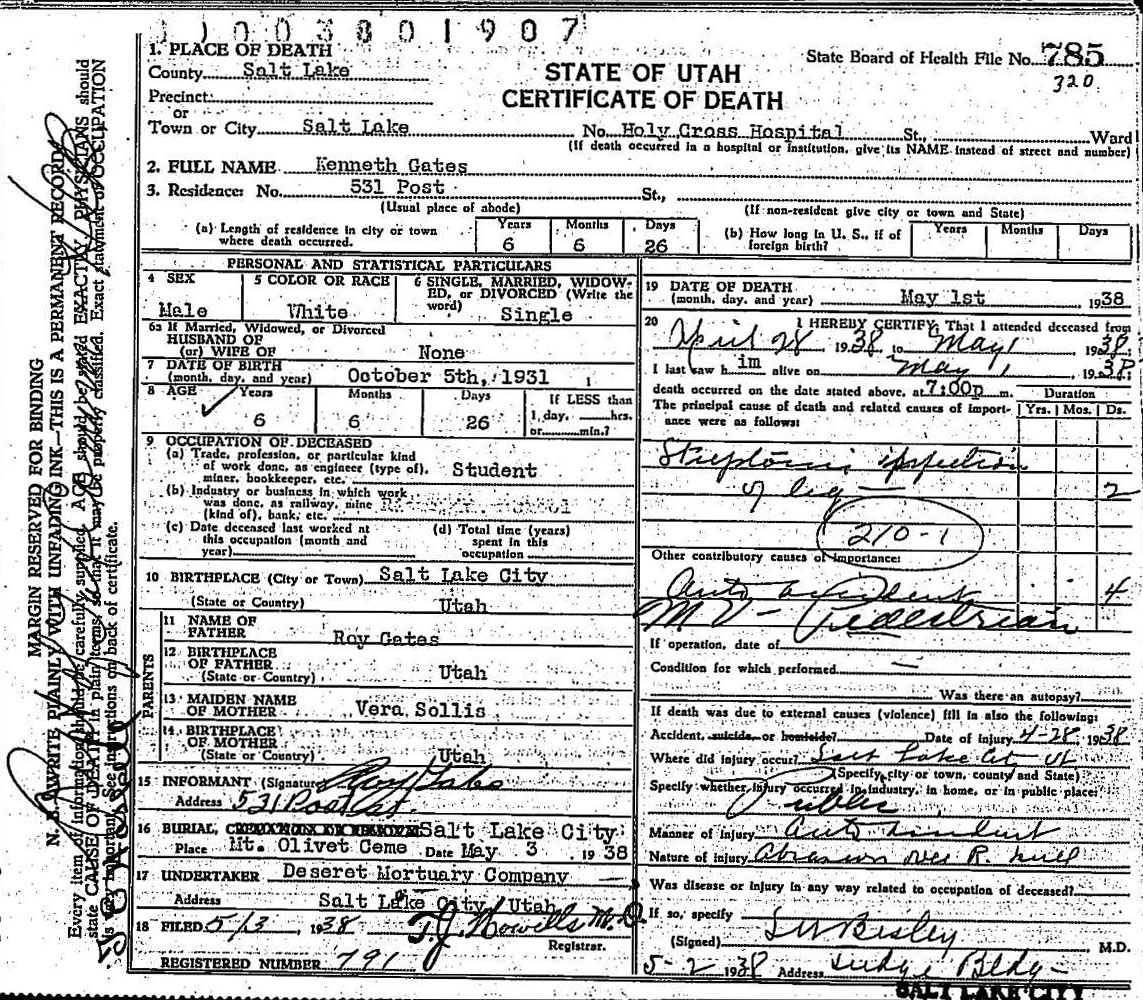 1003801907
1. PLACE OF DEATH
County Salt Lake
State Board of Health File No. 785
320
STATE OF UTAH
CERTIFICATE OF DEATH
Precinct
or
Town or City Salt Lake No. Holy Cross Hospital St., Ward
(If death occurred in a hospital or institution, give its NAME instead of street and number)
2. FULL NAME Kenneth Gates
3. Residence: No. 531 Post St.,
(Usual place of abode) (If non-resident give city or town and State)
(a) Length of residence in city or town where death occurred. Years 6 Months 6 Days 26
(b) How long in U. S., if of foreign birth? Years Months Days
PERSONAL AND STATISTICAL PARTICULARS
4 SEX Male
5 COLOR OR RACE White
6 SINGLE, MARRIED, WIDOWED, or DIVORCED (Write the word) Single
6a If Married, Widowed, or Divorced
HUSBAND OF
(or) WIFE OF None
7 DATE OF BIRTH
(month, day, and year) October 5th, 1931
8 AGE Years 6 Months 6 Days 26
If LESS than
1 day, hrs.
or min.?
9 OCCUPATION OF DECEASED
(a) Trade, profession, or particular kind
of work done, as engineer (type of),
miner, bookkeeper, etc. Student
(b) Industry or business in which work
was done, as railway, mine
(kind of), bank, etc.
(c) Date deceased last worked at
this occupation (month and
year)
(d) Total time (years)
spent in this
occupation
10 BIRTHPLACE (City or Town) Salt Lake City
(State or Country) Utah
PARENTS
11 NAME OF
FATHER Roy Gates
12 BIRTHPLACE
OF FATHER
(State or Country) Utah
13 MAIDEN NAME
OF MOTHER Vera Sollis
14 BIRTHPLACE
OF MOTHER
(State or Country) Utah
15 INFORMANT (Signature) Roy Gates
Address 531 Post St
16 BURIAL, CREMATION OR REMOVAL Salt Lake City
Place Mt. Olivet Ceme Date May 3 1938
17 UNDERTAKER Deseret Mortuary Company
Address Salt Lake City, Utah
18 FILED 5/3 1938 T.J. Howells M.D.
Registrar.
REGISTERED NUMBER 791
19 DATE OF DEATH
(month, day, and year) May 1st 1938
20 I HEREBY CERTIFY, That I attended deceased from
April 28 1938 to May 1 1938
I last saw him alive on May 1 1938
death occurred on the date stated above, at 7:00p m.
The principal cause of death and related causes of importance were as follows:
Duration
Yrs. Mos. Ds.
infection
of leg 2
210-1
Other contributory causes of importance:
Auto accident 4
M V - Pedestrian
If operation, date of
Condition for which performed
Was there an autopsy?
If death was due to external causes (violence) fill in also the following:
Accident, suicide, or homicide? Date of injury 4-28 1938
Where did injury occur? Salt Lake City Ut
(Specify city or town, county and State)
Specify whether injury occurred in industry, in home, or in public place:
Public
Manner of injury Auto accident
Nature of injury Abrasion over R.
Was disease or injury in any way related to occupation of deceased?
If so, specify
(Signed) M.D.
5-2 1938 Address Judge Bldg
SALT LAKE CITY
MARGIN RESERVED FOR BINDING
N. B. WRITE PLAINLY WITH UNFADING INK—THIS IS A PERMANENT RECORD
Every item of information should be carefully supplied. AGE should be stated EXACTLY. PHYSICIANS should
state CAUSE OF DEATH in plain terms, so that it may be properly classified. Exact statement of OCCUPATION
is very important. See instructions on back of certificate.